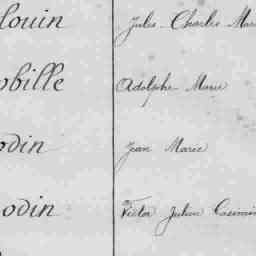 louin Jules Charles Mari
obille Adolphe Marie
odin Jean Marie
odin Victor Julien Casimir